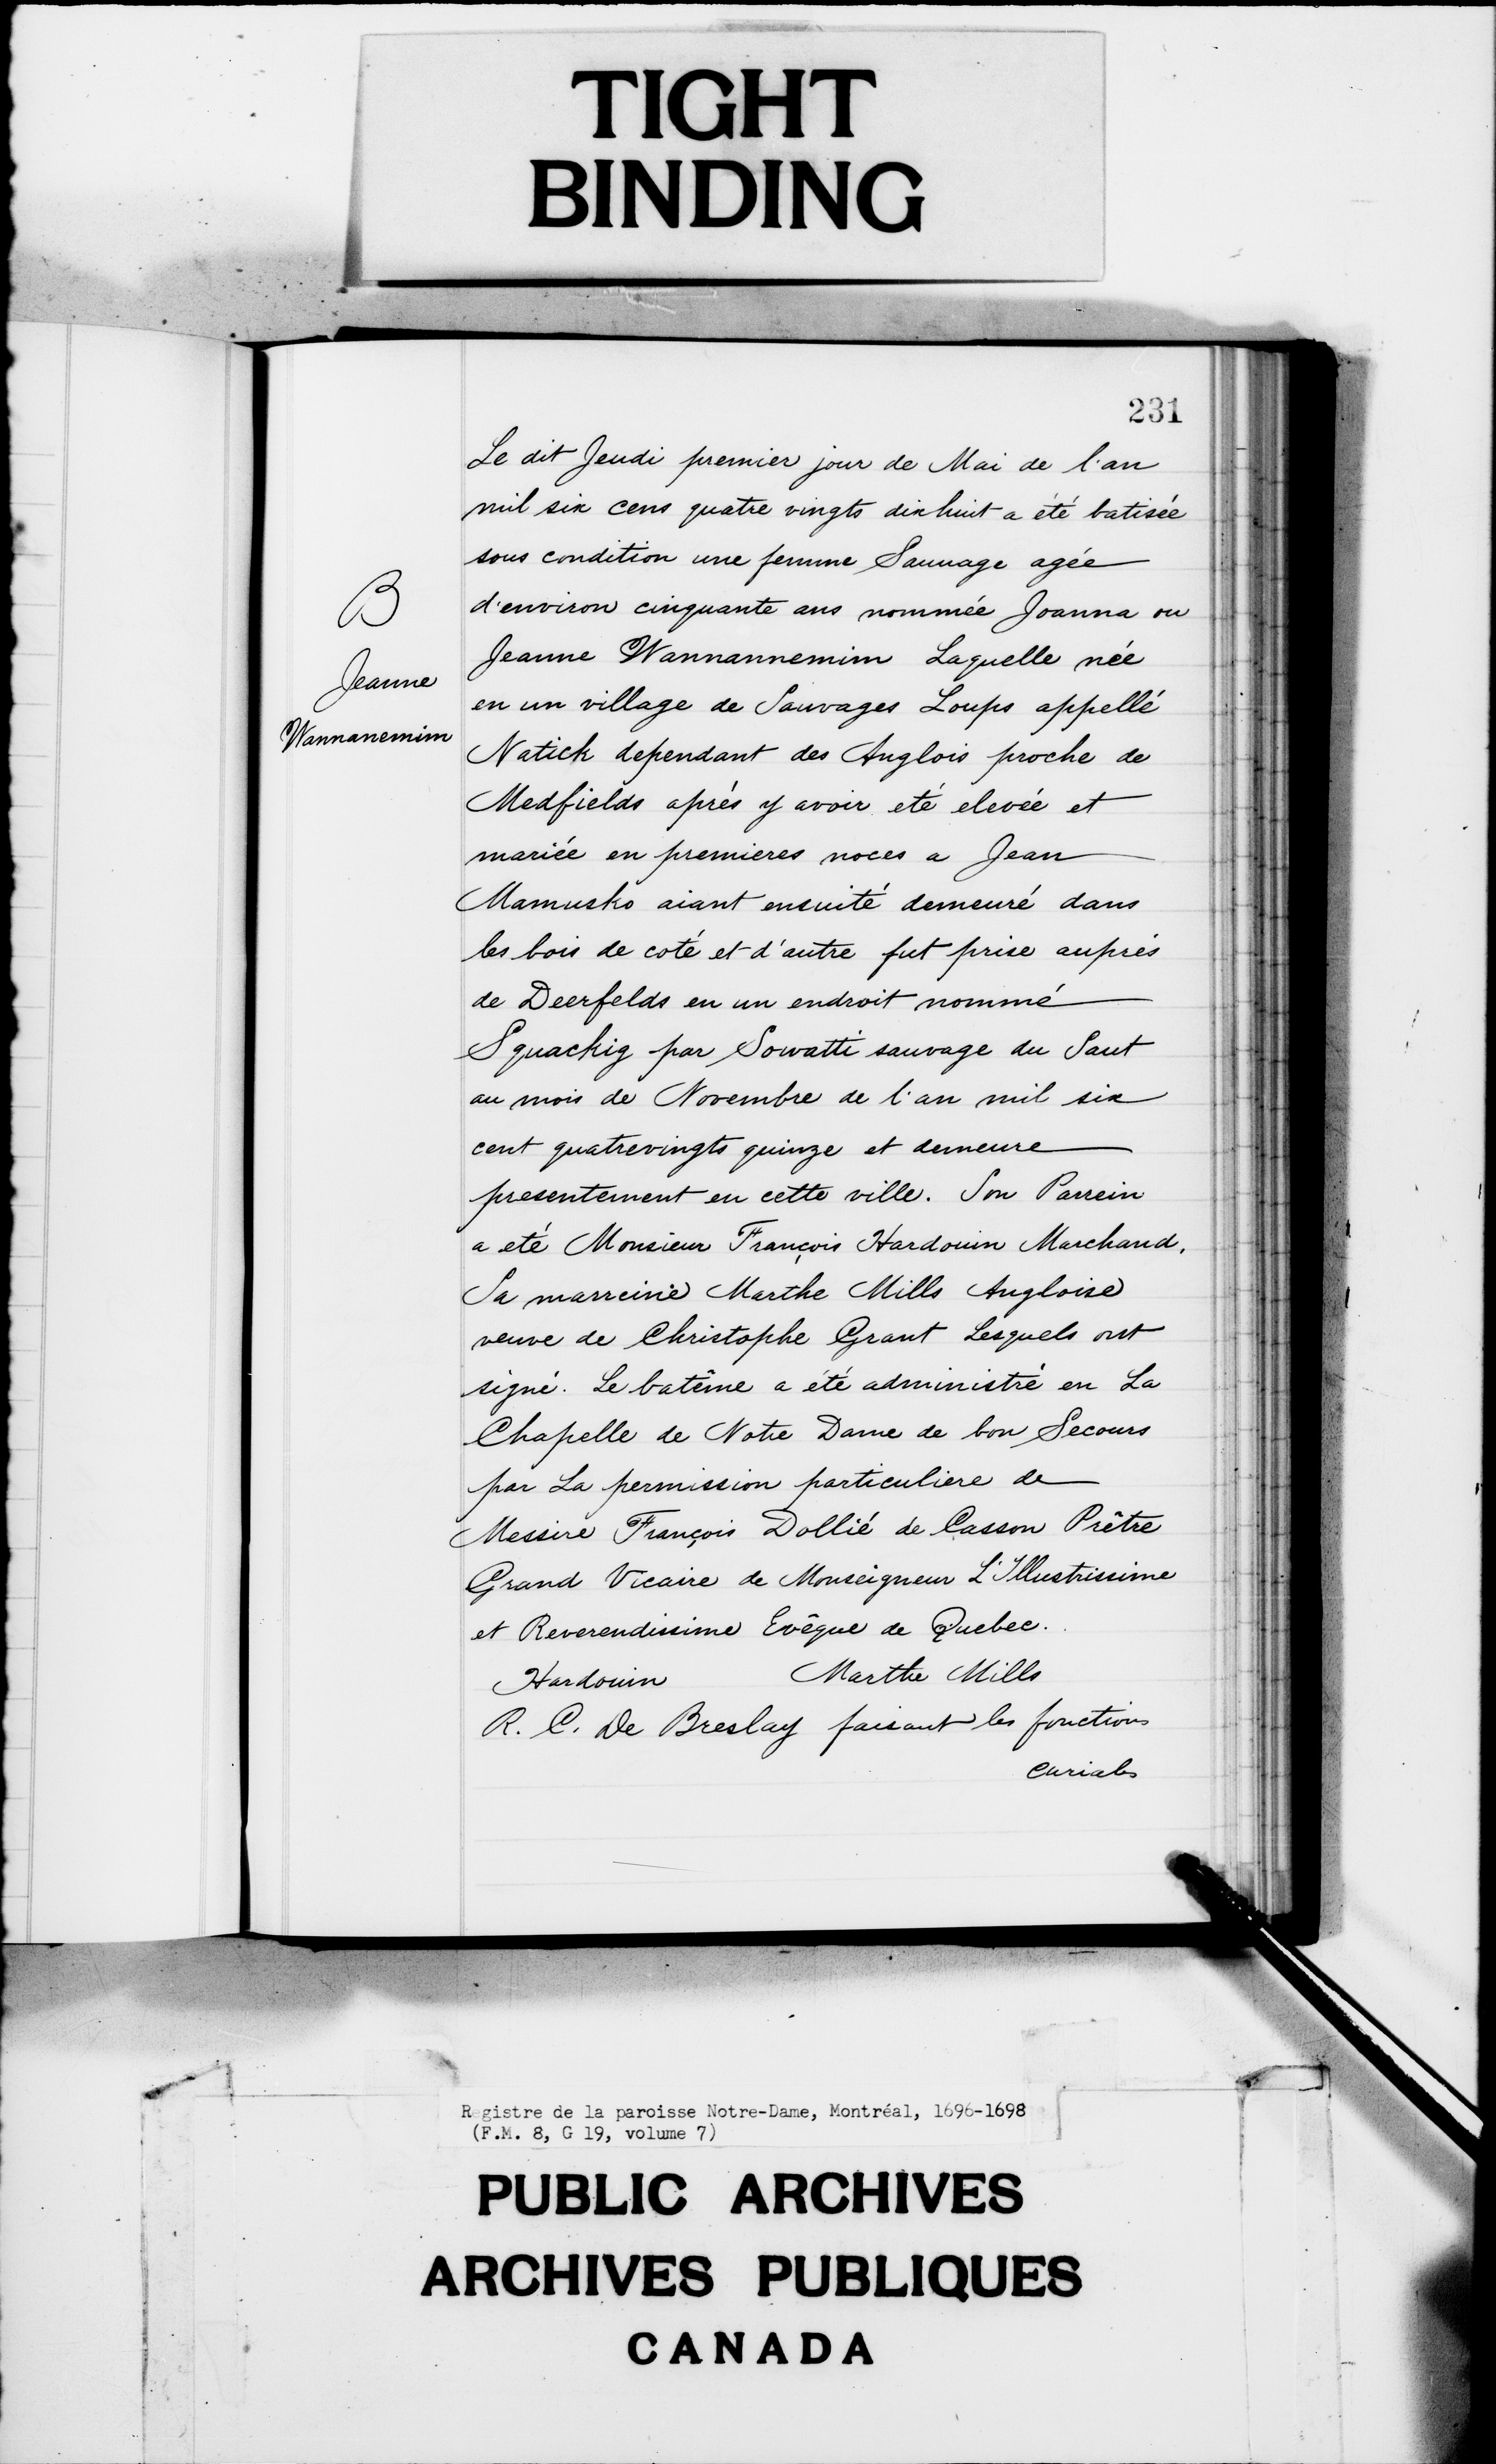 TIGHT
BINDING
231
Le dit Jeudi premier jour de Mai de l'an
mil six cens quatre vingts dix huit a été batisée
sous condition une femme Sauvage agée
d'environ cinquante ans nommée Joanna ou
Jeanne Wannannemim Laquelle née
en un village de Sauvages Loups appellé
Natick dependant des Anglois proche de
Medfields aprés y avoir eté elevée et
mariée en premieres noces a Jean
Mamusko aiant ensuité demeuré dans
les bois de coté et d'autre fut prise auprés
de Deerfelds en un endroit nommé
Squackig par Sowatti sauvage du Saut
au mois de Novembre de l'an mil six
cent quatrevingts quinze et demeure
presentement en cette ville. Son Parrein
a eté Monsieur François Hardouin Marchand.
Sa marreine Marthe Mills Angloise
veuve de Christophe Grant Lesquels ont
signé. Le batême a été administré en La
Chapelle de Notre Dame de bon Secours
par La permission particuliere de
Messire François Dollié de Casson Prêtre
Grand Vicaire de Monseigneur L'Illustrissime
et Reverendissime Evêque de Quebec.
Hardouin Marthe Mills
R. C. De Breslay faisant les fonctions
curiales
B
Jeanne
Wannanemim
Registre de la paroisse Notre-Dame, Montréal, 1696-1698
(F.M. 8, G 19, volume 7)
PUBLIC ARCHIVES
ARCHIVES PUBLIQUES
CANADA